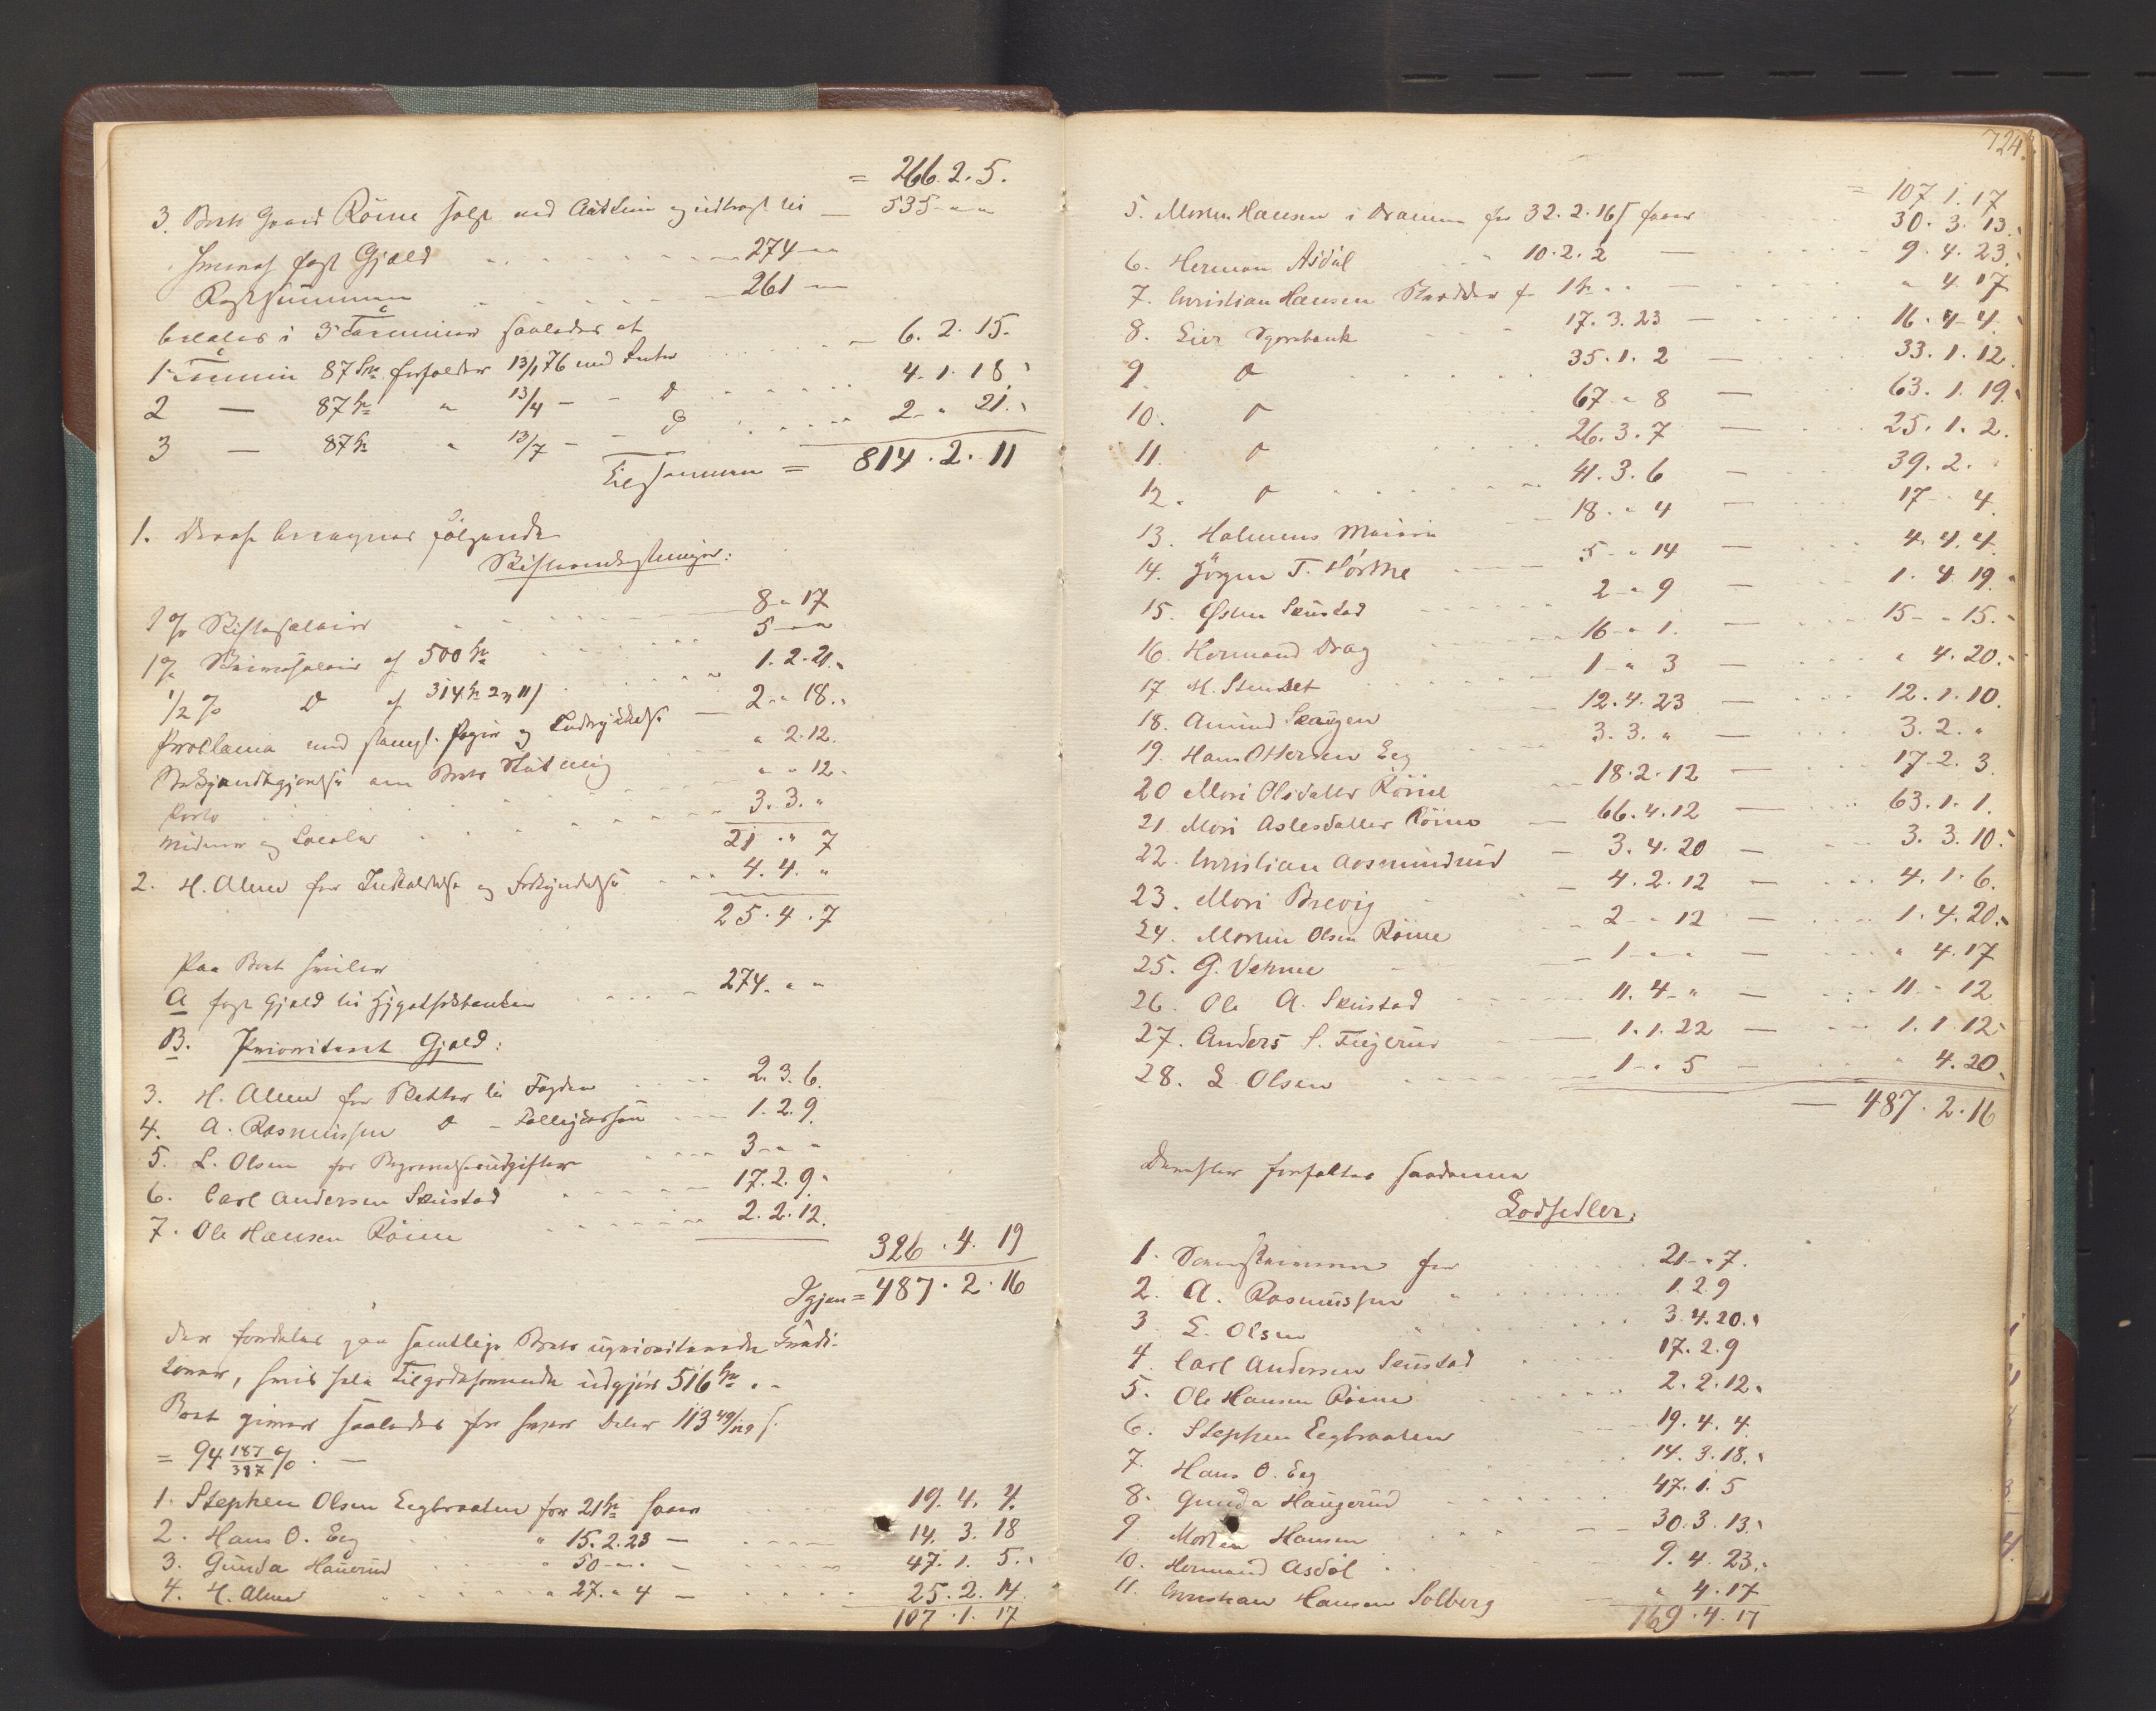 = 266. 2. 5.
3. Boets Gaard Röine solgt ved Auction og udbragt til — 535 - " -
hvoraf fast Gjæld 274 - "
Restsummen 261 - "
betales i 3 Terminer saaledes at
1 Termin 87 Spd. forfalder 13/1 76 med Renter 6. 2. 15.
2 — 87 Spd. " 13/4 - - do 4. 1. 18.
3 — 87 Spd. " 13/7 - - do 2 - " 21.
Tilsammen = 814. 2. 11
1. Deraf beregnes følgende
Skifteomkostninger:
1 % Skiftesalair 8 " 17
1 % Skriversalair af 500 Spd. 5 - " "
1/2 % do af 314 Spd. 2 11 1. 2. 21.
Proclama med stempl. Papir og Indrykkelse 2 " 18.
Bekjendtgjørelse om Boets Slutning " 2. 12.
Porto " " 12.
Midener og Locale 3. 3. "
21 " 7
2. H. Alme for Indkaldelse og Forkyndelse 4. 4. "
25. 4. 7
Paa Boet hviler
A fast Gjæld til Hypotheksbanken 274. " "
B. Prioriteret Gjæld:
3. H. Alme for Skatter til Fogden 2. 3. 6.
4. A. Rasmussen do - 1. 2. 9.
5. L. Olsen for Begravelsesudgifter 3 - " "
6. Carl Andersen Skustad 17. 2. 9.
7. Ole Hansen Röine 2. 2. 12.
326. 4. 19
Igjen = 487. 2. 16
der fordeles paa samtlige Boets uprioriterede Credi-
torer, hvis hele Tilgodehavende udgjør 516 Spd. " -
Boet giver saaledes for hver Daler 113 49/129 s.
= 94 187/387 %. —
1. Stephen Olsen Eegbraaten for 21 Spd. faaer 19. 4. 4.
2. Hans O. Eeg " 15. 2. 23 — 14. 3. 18
3. Gunda Haugerud " 50 - " - — 47. 1. 5.
4. H. Alme " 27. " 4 — 25. 2. 14
107. 1. 17
724.
= 107. 1. 17
5. Morten Hansen i Drammen for 32. 2. 16 s faaer 30. 3. 13.
6. Herman Asdöl " 10. 2. 2 — 9. 4. 23.
7. Christian Hansen Skrædder f 1 Spd. " " — " 4. 17
8. Eier Sparebank 17. 3. 23 — 16. 4. 4.
9. do 35. 1. 2 — 33. 1. 12.
10. do 67 - " 8 — 63. 1. 19.
11. do 26. 3. 7 — 25. 1. 2.
12. do 41. 3. 6 — 39. 2.
13. Halmens 18. " 4 — 17 - " 4.
14. Jörgen T. Hörthe 5 - " 14 — 4. 4. 4.
15. Östen Skustad 2 - " 9 — 1. 4. 19.
16. Hermand Drag 16 - " 1. — 15 - " 15.
17. H. Stendet 1 - " 3 — " 4. 20.
18. Amund Skaugen 12. 4. 23 — 12. 1. 10.
19. Hans Ottersen Eeg 3. 3. " — 3. 2. "
20 Mari Olsdatter Röine 18. 2. 12 — 17. 2. 3.
21. Mari Aslesdatter Röine — 66. 4. 12 — 63. 1. 1.
22. Christian Aasmundrud — 3. 4. 20 — 3. 3. 10.
23. Mari Brevig — 4. 2. 12 — 4. 1. 6.
24. Morten Olsen Röine 2 - " 12 — 1. 4. 20.
25. G. Vehme — 1 - " " — " 4. 17
26. Ole A. Skustad 11. 4 - " — 11 - " 12
27. Anders S. 1. 1. 22 — 1. 1. 12.
28. L. Olsen 1 - " 5 — " 4. 20.
— 487. 2. 16
Derefter forfattes saadanne
Lodsedler:
1. Sorenskriveren for 21 - " 7.
2. A. Rasmussen " 1. 2. 9
3 L. Olsen 3. 4. 20.
4. Carl Andersen Skustad 17. 2. 9
5. Ole Hansen Röine 2. 2. 12.
6. Stephen Eegbraaten 19. 4. 4.
7. Hans O. Eeg 14. 3. 18.
8. Gunda Haugerud 47. 1. 5
9 Morten Hansen 30. 3. 13.
10. Hermand Asdöl 9. 4. 23.
11. Christian Hansen Solberg " 4. 17
169. 4. 17